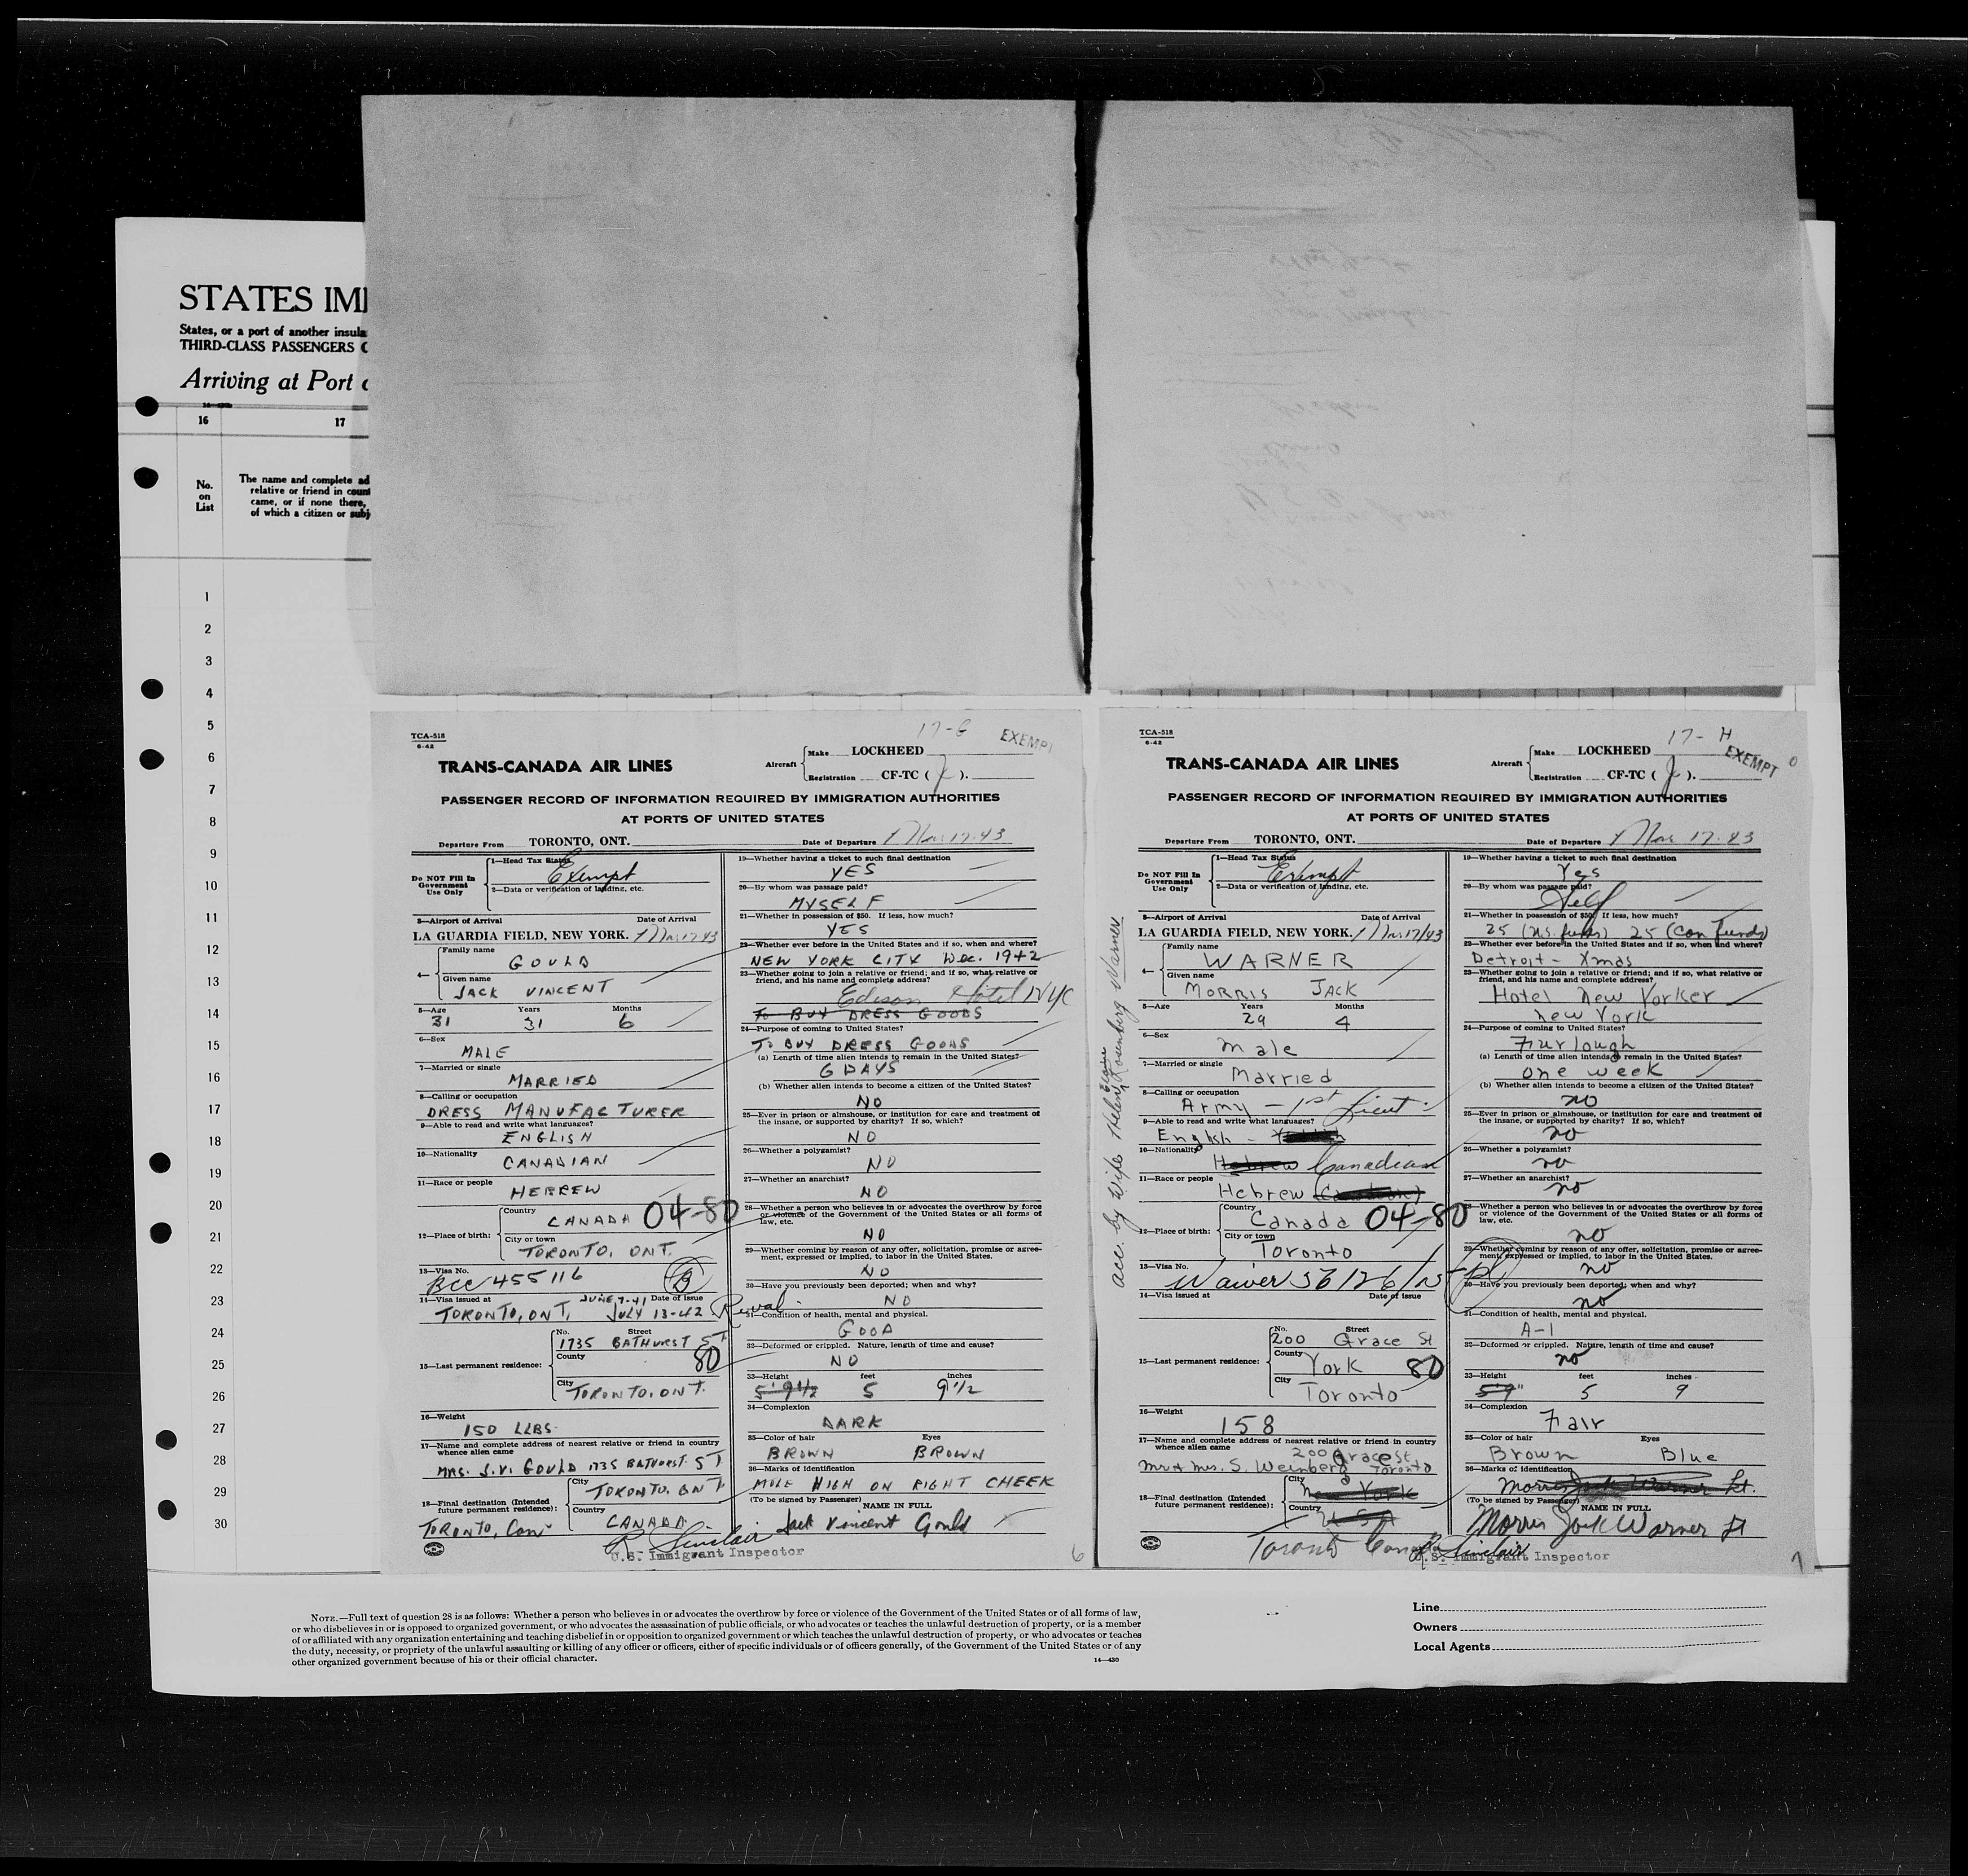 STATES IMI
States, or a port of another insula
THIRD-CLASS PASSENGERS C
Arriving at Port o
16 17
No. on List
The name and complete ad
relative or friend in count
came, or if none there,
of which a citizen or subj
1
2
3
4
5
6
7
8
9
10
11
12
13
14
15
16
17
18
19
20
21
22
23
24
25
26
27
28
29
30
TCA-518
6-42
17-G
EXEMPT
TRANS-CANADA AIR LINES
Aircraft Make LOCKHEED
Registration CF-TC ( ).
PASSENGER RECORD OF INFORMATION REQUIRED BY IMMIGRATION AUTHORITIES
AT PORTS OF UNITED STATES
Departure From TORONTO, ONT. Date of Departure Mar 17-43
Do NOT Fill In Government Use Only
1—Head Tax Status
Exempt
2—Data or verification of landing, etc.
3—Airport of Arrival Date of Arrival
LA GUARDIA FIELD, NEW YORK. Mar 17 43
4— Family name
GOULD
Given name
JACK VINCENT
5—Age Years Months
31 31 6
6—Sex
MALE
7—Married or single
MARRIED
8—Calling or occupation
DRESS MANUFACTURER
9—Able to read and write what languages?
ENGLISH
10—Nationality
CANADIAN
11—Race or people
HEBREW
12—Place of birth: Country
CANADA 04-80
City or town
TORONTO, ONT.
13—Visa No.
BCC 455116 B
14—Visa issued at Date of issue
JUNE 7-41
TORONTO, ONT, JULY 13-42
15—Last permanent residence: No. Street
1735 BATHURST ST
County
80
City
TORONTO, ONT.
16—Weight
150 LLBS.
17—Name and complete address of nearest relative or friend in country whence alien came
MRS. J.V. GOULD 1735 BATHURST ST
18—Final destination (Intended future permanent residence): City
TORONTO, ONT.
Country
CANADA.
TORONTO, Can
19—Whether having a ticket to such final destination
YES
20—By whom was passage paid?
MYSELF
21—Whether in possession of $50. If less, how much?
YES
22—Whether ever before in the United States and if so, when and where?
NEW YORK CITY Dec. 1942
23—Whether going to join a relative or friend; and if so, what relative or
friend, and his name and complete address?
Edison Hotel NYC
TO BUY DRESS GOODS
24—Purpose of coming to United States?
TO BUY DRESS GOODS
(a) Length of time alien intends to remain in the United States?
6 DAYS
(b) Whether alien intends to become a citizen of the United States?
NO
25—Ever in prison or almshouse, or institution for care and treatment of
the insane, or supported by charity? If so, which?
NO
26—Whether a polygamist?
NO
27—Whether an anarchist?
NO
28—Whether a person who believes in or advocates the overthrow by force
or violence of the Government of the United States or all forms of
law, etc.
NO
29—Whether coming by reason of any offer, solicitation, promise or agree-
ment, expressed or implied, to labor in the United States.
NO
30—Have you previously been deported; when and why?
NO
31—Condition of health, mental and physical.
GOOD
32—Deformed or crippled. Nature, length of time and cause?
NO
33—Height feet inches
5'9½ 5 9½
34—Complexion
DARK
35—Color of hair Eyes
BROWN BROWN
36—Marks of identification
MOLE HIGH ON RIGHT CHEEK
(To be signed by Passenger) NAME IN FULL
Jack Vincent Gould
R Sinclair
U.S. Immigrant Inspector
6
TCA-518
6-42
17-H
EXEMPT
TRANS-CANADA AIR LINES
Aircraft Make LOCKHEED
Registration CF-TC ( ).
PASSENGER RECORD OF INFORMATION REQUIRED BY IMMIGRATION AUTHORITIES
AT PORTS OF UNITED STATES
Departure From TORONTO, ONT. Date of Departure Mar 17-43
acc. by wife Helen Elaine Rosenberg Warner
Do NOT Fill In Government Use Only
1—Head Tax Status
Exempt
2—Data or verification of landing, etc.
3—Airport of Arrival Date of Arrival
LA GUARDIA FIELD, NEW YORK. Mar 17/43
4— Family name
WARNER
Given name
MORRIS JACK
5—Age Years Months
29 4
6—Sex
Male
7—Married or single
Married
8—Calling or occupation
Army - 1st Lieut.
9—Able to read and write what languages?
English -
10—Nationality
Hebrew Canadian
11—Race or people
Hebrew (Canadian)
12—Place of birth: Country
Canada 04-80
City or town
Toronto
13—Visa No.
Waiver 56126/
14—Visa issued at Date of issue
15—Last permanent residence: No. Street
200 Grace St
County
York 80
City
Toronto
16—Weight
158
17—Name and complete address of nearest relative or friend in country whence alien came
200 Grace St
Mr & Mrs. S. Weinberg Toronto
18—Final destination (Intended future permanent residence): City
New York
Country
USA
Toronto Canada
19—Whether having a ticket to such final destination
Yes
20—By whom was passage paid?
Self
21—Whether in possession of $50. If less, how much?
25 (U.S. funds) 25 (Can Funds)
22—Whether ever before in the United States and if so, when and where?
Detroit - Xmas
23—Whether going to join a relative or friend; and if so, what relative or
friend, and his name and complete address?
Hotel New Yorker
New York
24—Purpose of coming to United States?
Furlough
(a) Length of time alien intends to remain in the United States?
one week
(b) Whether alien intends to become a citizen of the United States?
no
25—Ever in prison or almshouse, or institution for care and treatment of
the insane, or supported by charity? If so, which?
no
26—Whether a polygamist?
no
27—Whether an anarchist?
no
28—Whether a person who believes in or advocates the overthrow by force
or violence of the Government of the United States or all forms of
law, etc.
no
29—Whether coming by reason of any offer, solicitation, promise or agree-
ment, expressed or implied, to labor in the United States.
no
30—Have you previously been deported; when and why?
no
31—Condition of health, mental and physical.
A-1
32—Deformed or crippled. Nature, length of time and cause?
no
33—Height feet inches
5'9" 5 9
34—Complexion
Fair
35—Color of hair Eyes
Brown Blue
36—Marks of identification
Morris Jack Warner Lt.
(To be signed by Passenger) NAME IN FULL
Morris Jack Warner Lt
R. Sinclair
U.S. Immigrant Inspector
7
NOTE.—Full text of question 28 is as follows: Whether a person who believes in or advocates the overthrow by force or violence of the Government of the United States or of all forms of law,
or who disbelieves in or is opposed to organized government, or who advocates the assassination of public officials, or who advocates or teaches the unlawful destruction of property, or is a member
of or affiliated with any organization entertaining and teaching disbelief in or opposition to organized government or which teaches the unlawful destruction of property, or who advocates or teaches
the duty, necessity, or propriety of the unlawful assaulting or killing of any officer or officers, either of specific individuals or of officers generally, of the Government of the United States or of any
other organized government because of his or their official character.
14—430
Line
Owners
Local Agents